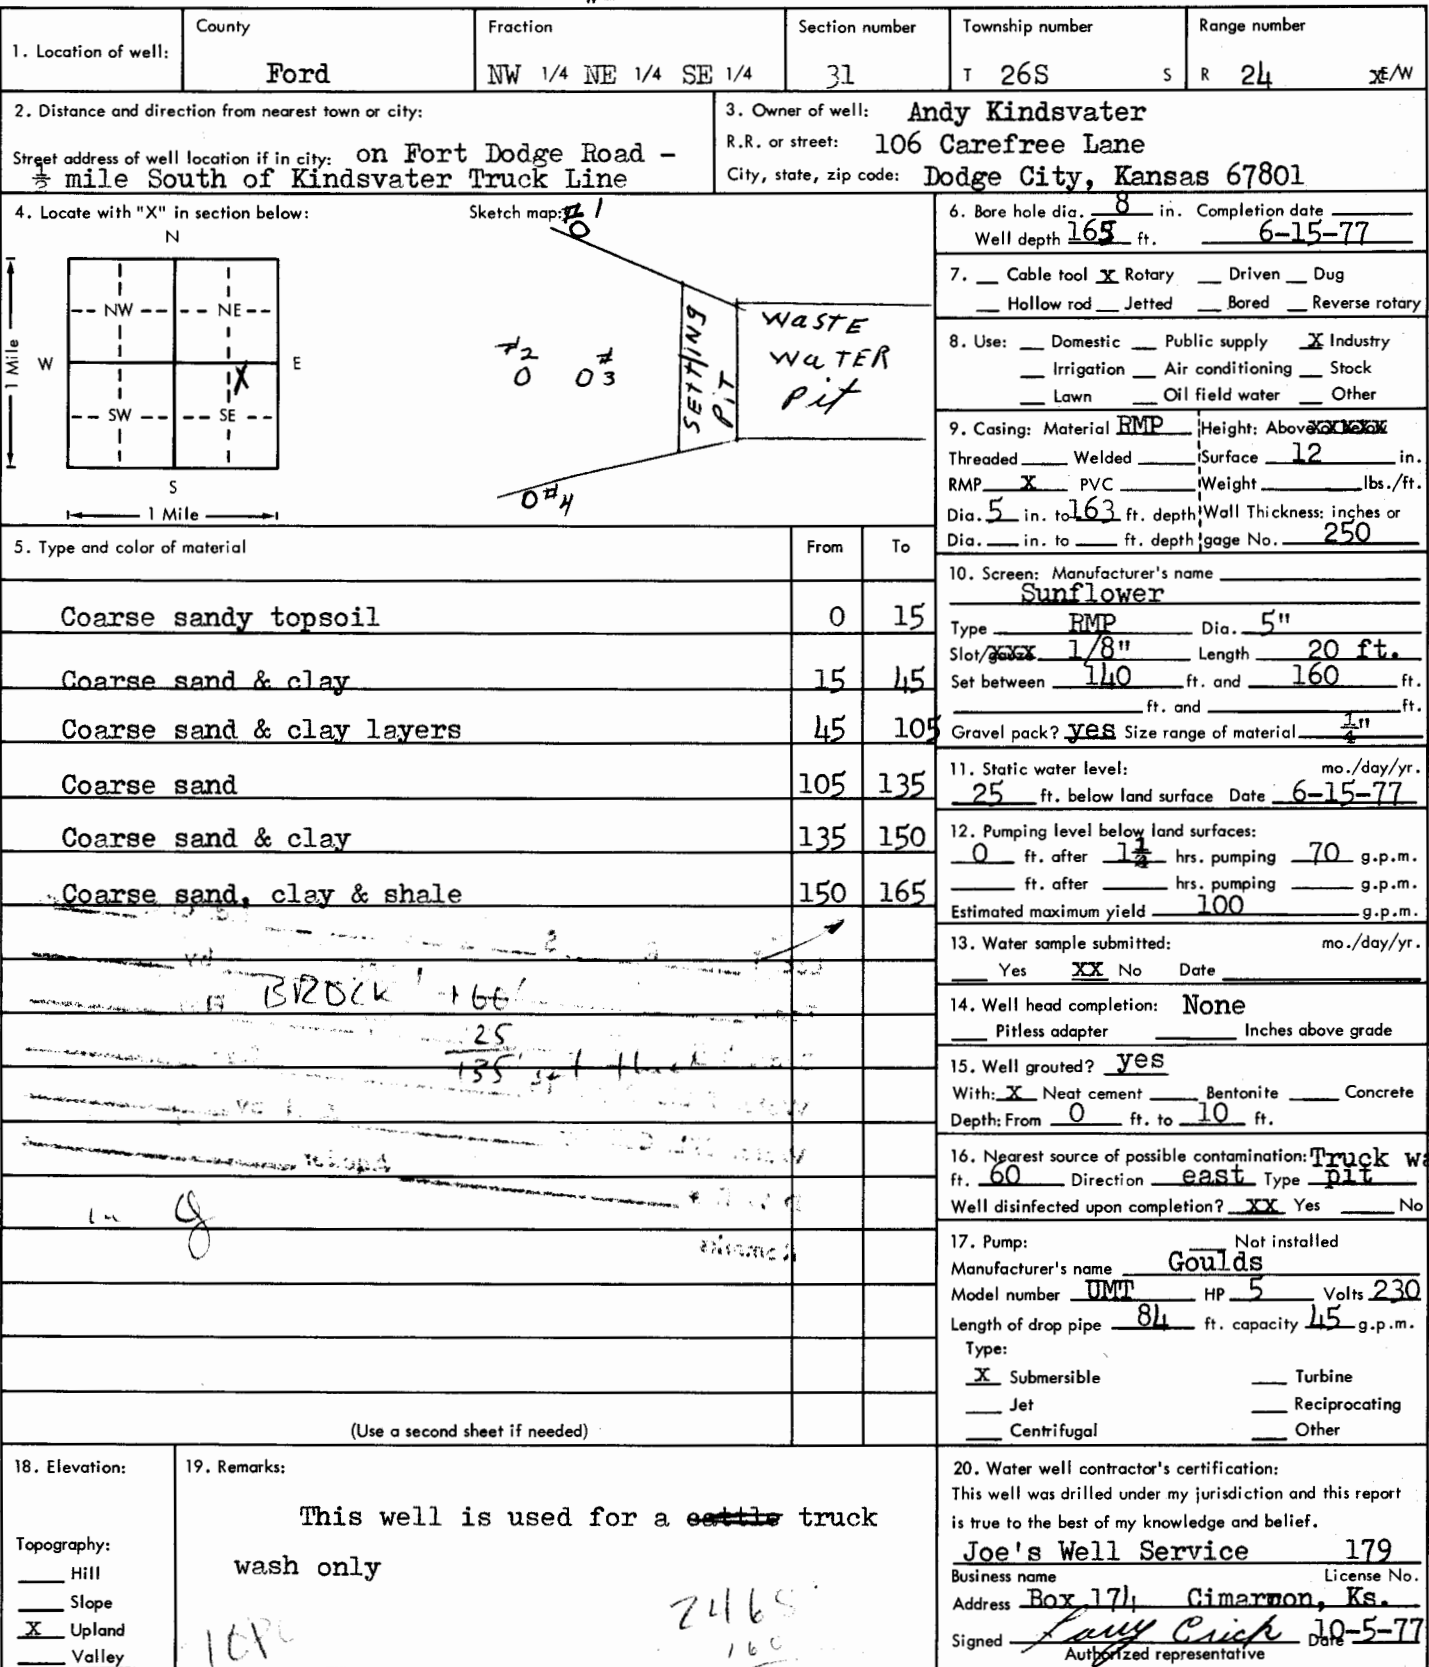 County
Fraction
Section number
Township number
Range number
1. Location of well:
Ford
NW 1/4 NE 1/4 SE 1/4
31
T 26S S
R 24 E/W
2. Distance and direction from nearest town or city:
Street address of well location if in city: on Fort Dodge Road -
½ mile South of Kindsvater Truck Line
3. Owner of well: Andy Kindsvater
R.R. or street: 106 Carefree Lane
City, state, zip code: Dodge City, Kansas 67801
4. Locate with "X" in section below:
N
NW NE
W E
X
SW SE
S
1 Mile
1 Mile
Sketch map:
#1
0
#2
0
#
0 3
0 #4
SETTLING PIT
WASTE
WATER
Pit
5. Type and color of material From To
Coarse sandy topsoil 0 15
Coarse sand & clay 15 45
Coarse sand & clay layers 45 105
Coarse sand 105 135
Coarse sand & clay 135 150
Coarse sand, clay & shale 150 165
BROCK
25
135
(Use a second sheet if needed)
6. Bore hole dia. 8 in. Completion date
Well depth 165 ft. 6-15-77
7. Cable tool X Rotary Driven Dug
Hollow rod Jetted Bored Reverse rotary
8. Use: Domestic Public supply X Industry
Irrigation Air conditioning Stock
Lawn Oil field water Other
9. Casing: Material RMP Height: Above
Threaded Welded Surface 12 in.
RMP X PVC Weight lbs./ft.
Dia. 5 in. to 163 ft. depth Wall Thickness: inches or
Dia. in. to ft. depth gage No. 250
10. Screen: Manufacturer's name
Sunflower
Type RMP Dia. 5"
Slot/gauze 1/8" Length 20 ft.
Set between 140 ft. and 160 ft.
ft. and ft.
Gravel pack? yes Size range of material ¼"
11. Static water level: mo./day/yr.
25 ft. below land surface Date 6-15-77
12. Pumping level below land surfaces:
0 ft. after hrs. pumping 70 g.p.m.
ft. after hrs. pumping g.p.m.
Estimated maximum yield 100 g.p.m.
13. Water sample submitted: mo./day/yr.
Yes XX No Date
14. Well head completion: None
Pitless adapter Inches above grade
15. Well grouted? yes
With: X Neat cement Bentonite Concrete
Depth: From 0 ft. to 10 ft.
16. Nearest source of possible contamination: Truck wa
ft. 60 Direction east Type pit
Well disinfected upon completion? XX Yes No
17. Pump: Not installed
Manufacturer's name Goulds
Model number UMT HP 5 Volts 230
Length of drop pipe 84 ft. capacity 45 g.p.m.
Type:
X Submersible Turbine
Jet Reciprocating
Centrifugal Other
18. Elevation:
Topography:
Hill
Slope
X Upland
Valley
19. Remarks:
This well is used for a cattle truck
wash only
20. Water well contractor's certification:
This well was drilled under my jurisdiction and this report
is true to the best of my knowledge and belief.
Joe's Well Service 179
Business name License No.
Address Box 174 Cimarron, Ks.
Signed Date 10-5-77
Authorized representative